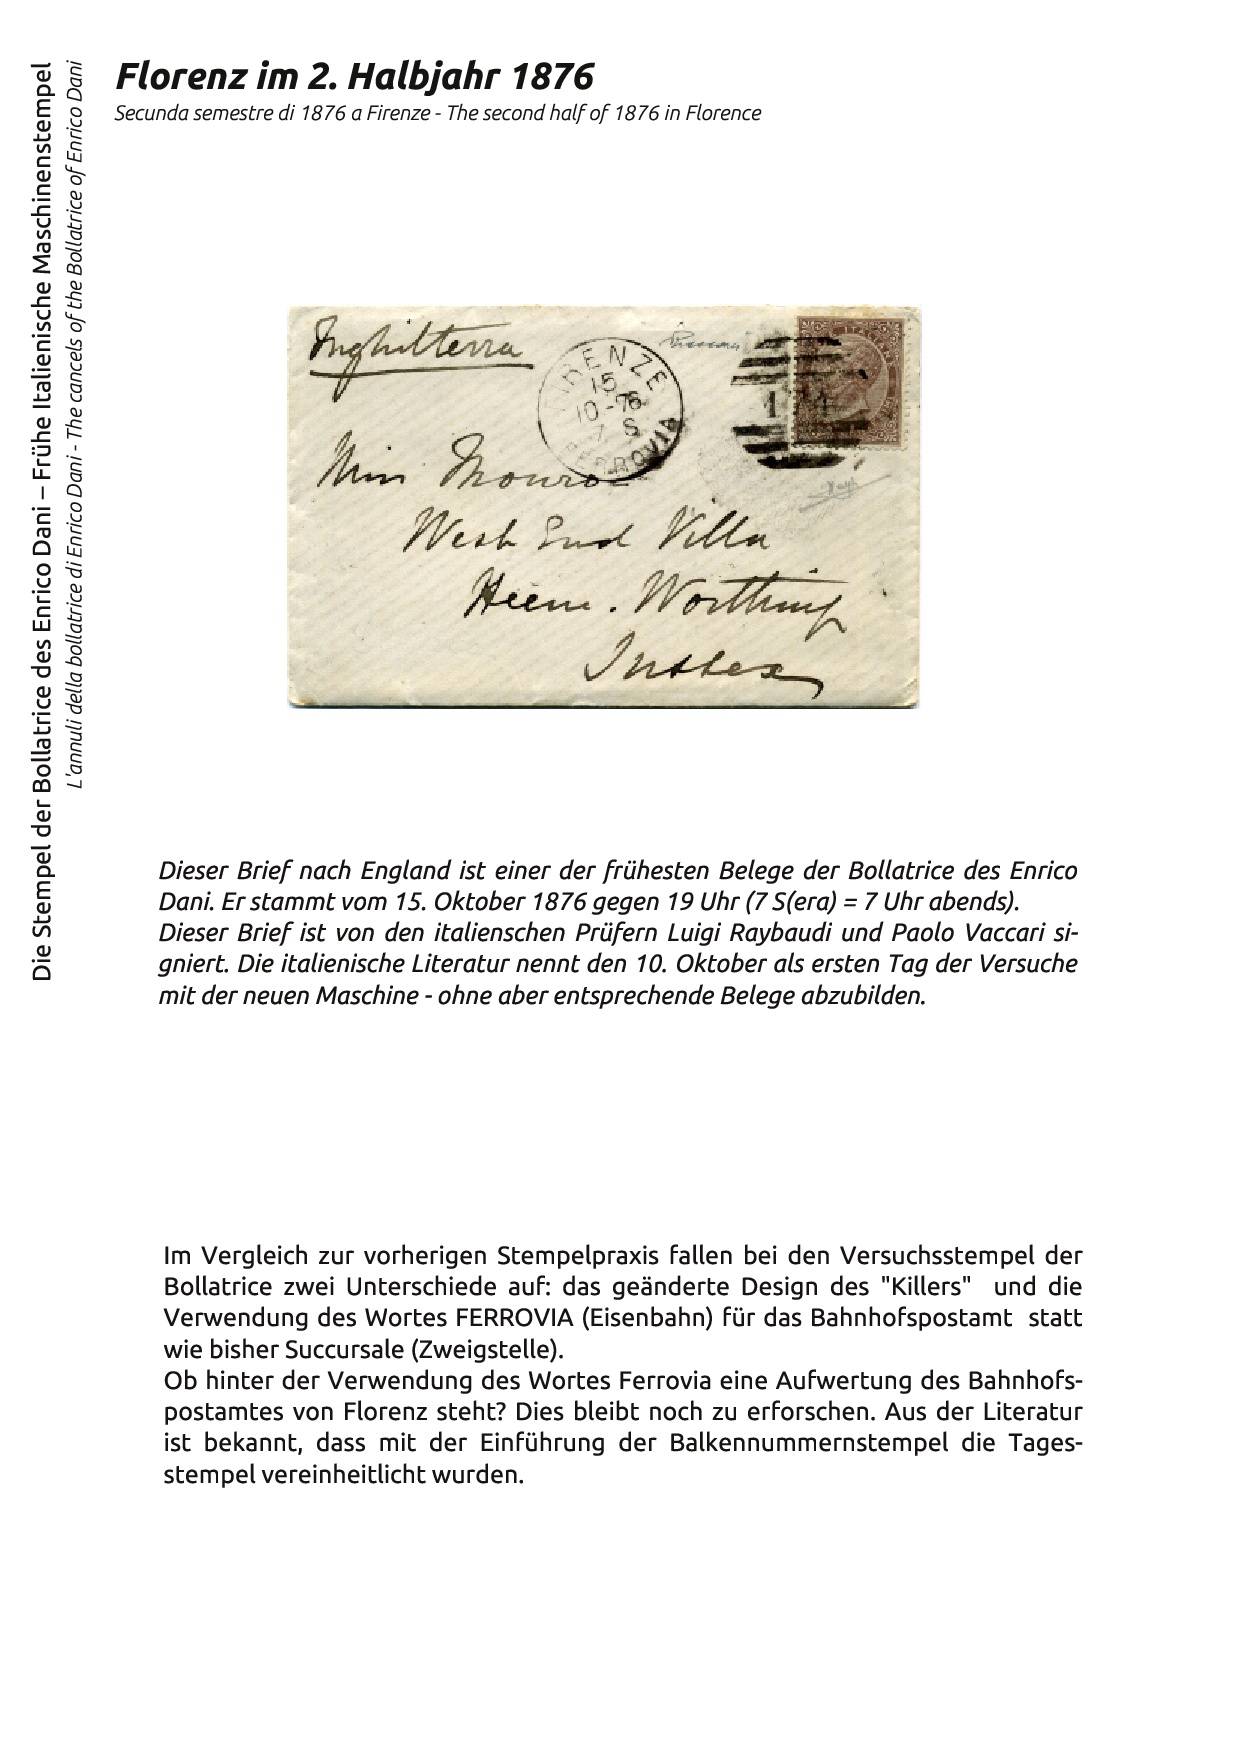 Die Stempel der Bollatrice des Enrico Dani – Frühe Italienische Maschinenstempel
L'annuli della bollatrice di Enrico Dani - The cancels of the Bollatrice of Enrico Dani
Florenz im 2. Halbjahr 1876
Secunda semestre di 1876 a Firenze - The second half of 1876 in Florence
Inghilterra
FIRENZE
15
10 - 76
7 S
FERROVIA
Miss Monroe
West End Villa
Heene. Worthing
Sussex
Dieser Brief nach England ist einer der frühesten Belege der Bollatrice des Enrico
Dani. Er stammt vom 15. Oktober 1876 gegen 19 Uhr (7 S(era) = 7 Uhr abends).
Dieser Brief ist von den italienschen Prüfern Luigi Raybaudi und Paolo Vaccari si-
gniert. Die italienische Literatur nennt den 10. Oktober als ersten Tag der Versuche
mit der neuen Maschine - ohne aber entsprechende Belege abzubilden.
Im Vergleich zur vorherigen Stempelpraxis fallen bei den Versuchsstempel der
Bollatrice zwei Unterschiede auf: das geänderte Design des "Killers" und die
Verwendung des Wortes FERROVIA (Eisenbahn) für das Bahnhofspostamt statt
wie bisher Succursale (Zweigstelle).
Ob hinter der Verwendung des Wortes Ferrovia eine Aufwertung des Bahnhofs-
postamtes von Florenz steht? Dies bleibt noch zu erforschen. Aus der Literatur
ist bekannt, dass mit der Einführung der Balkennummernstempel die Tages-
stempel vereinheitlicht wurden.